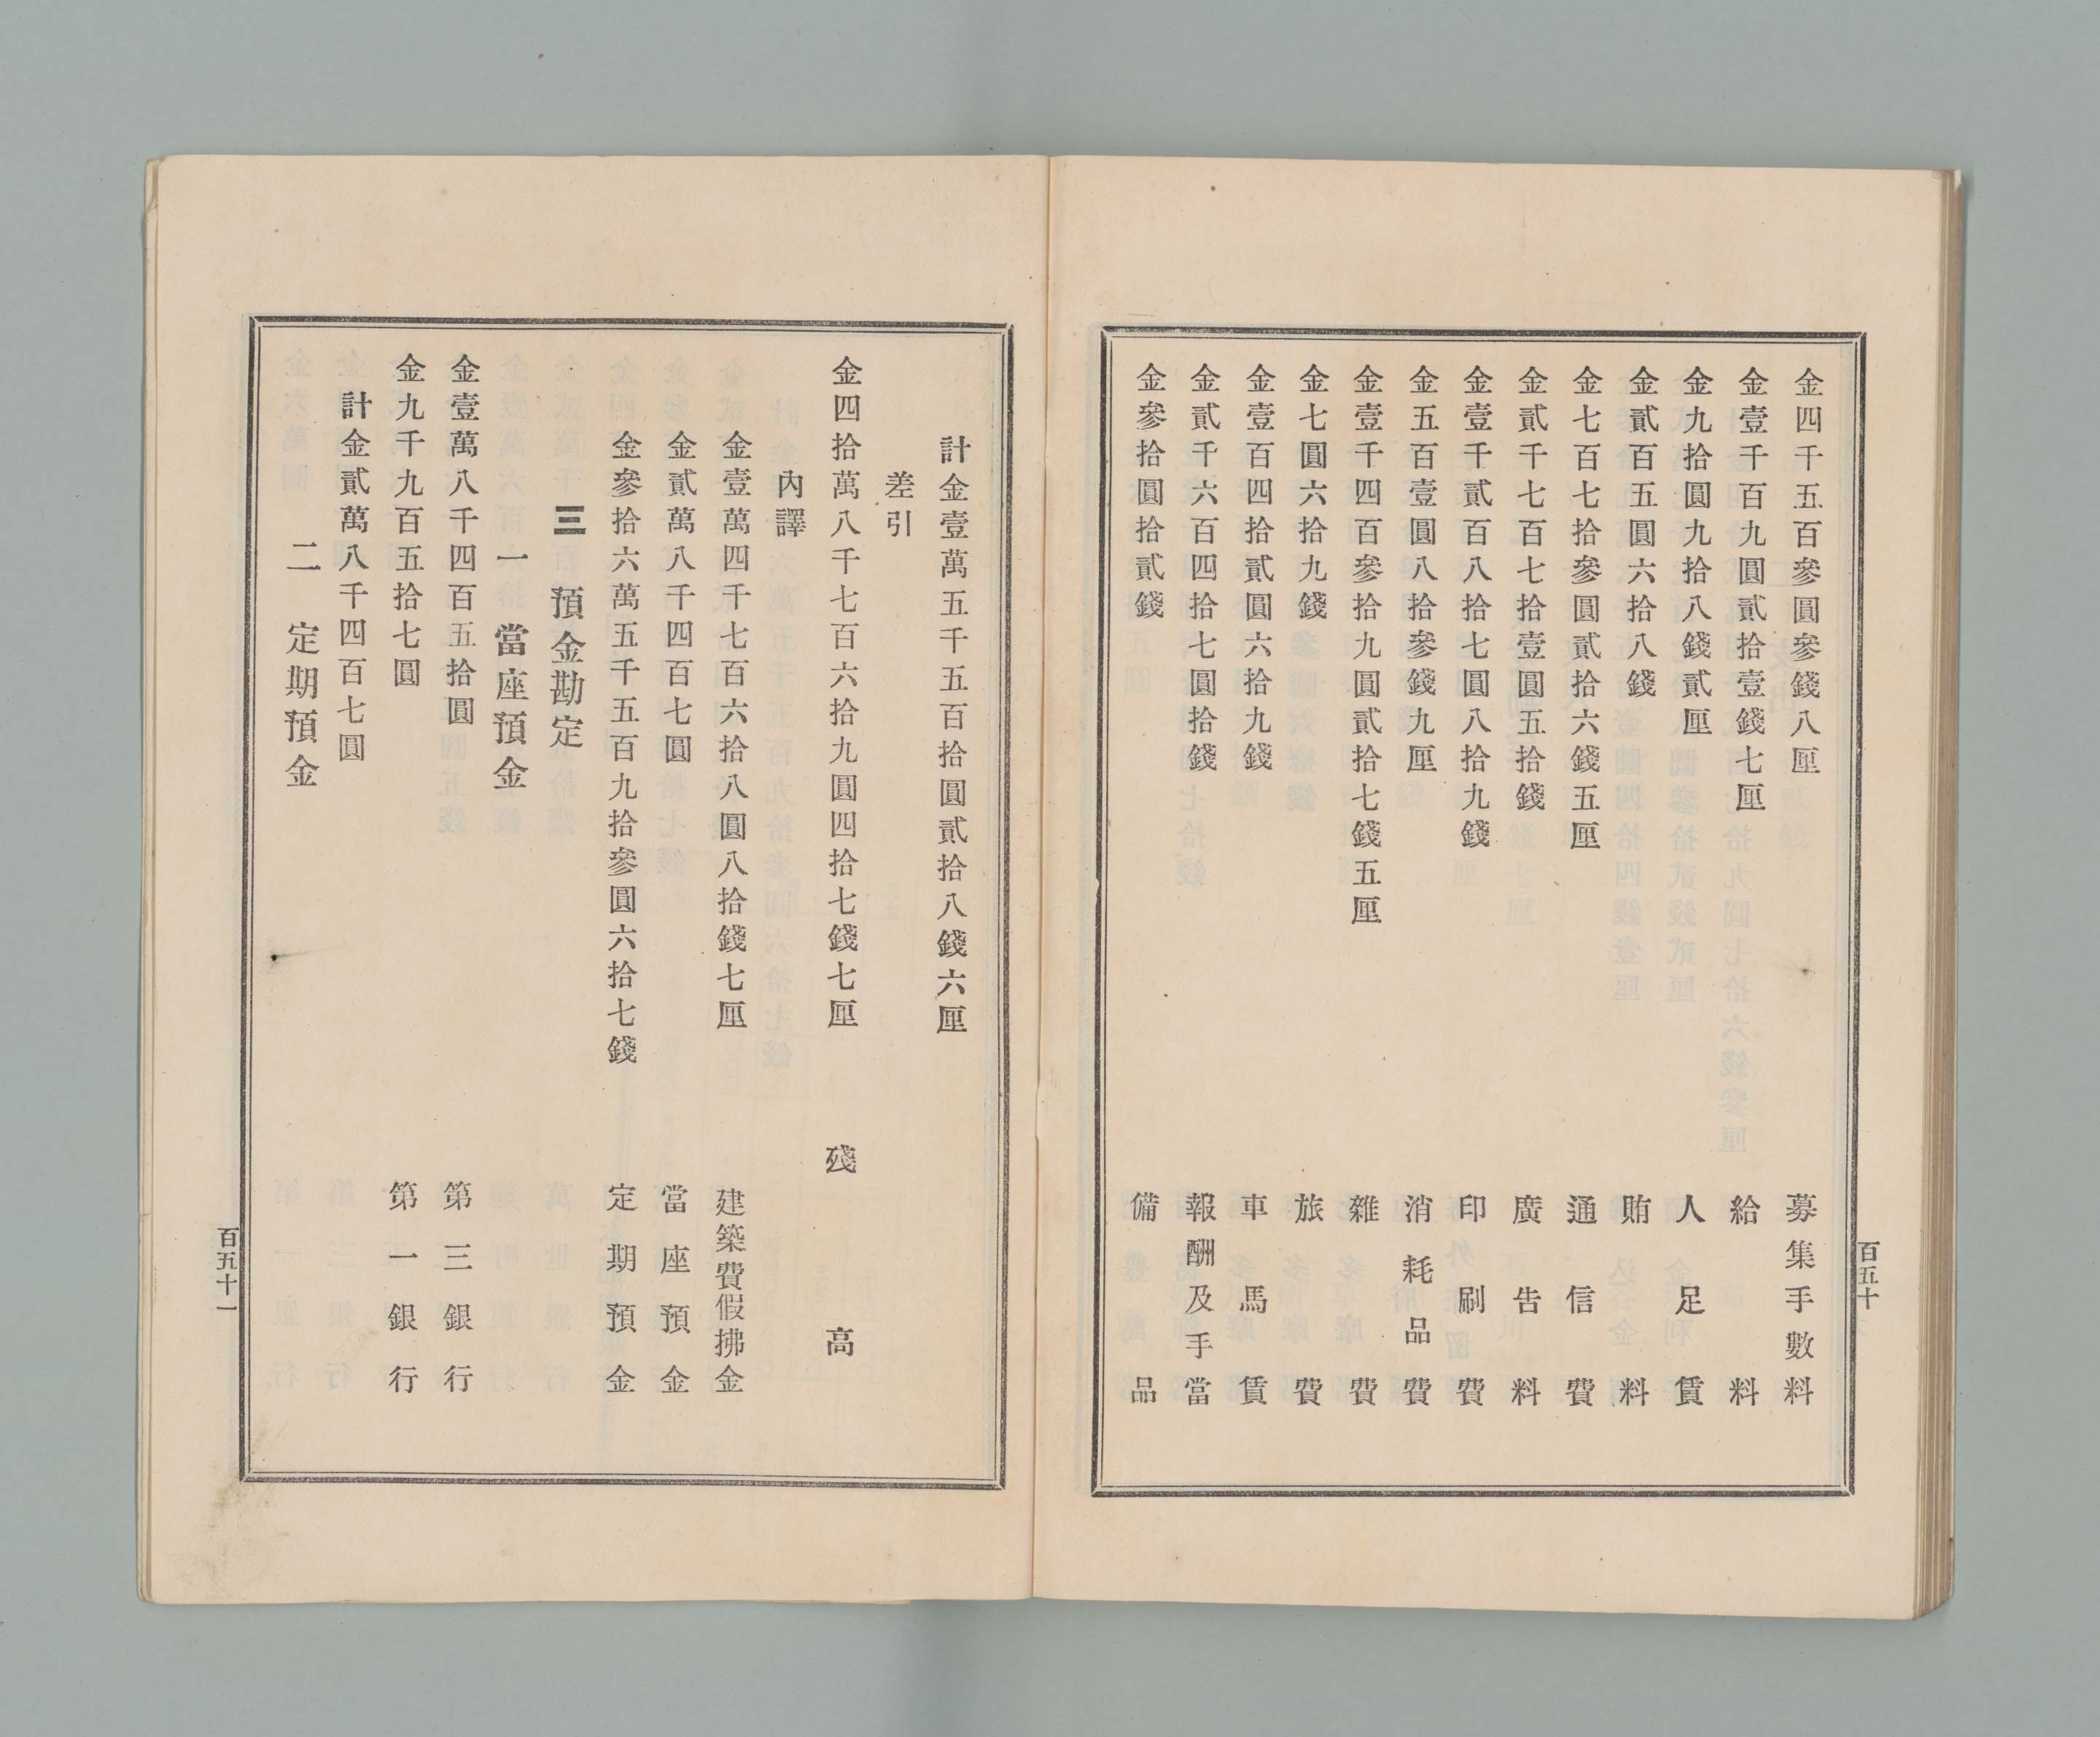 金四千五百參圓參錢八厘 募集手數料
金壹千百九圓貳拾壹錢七厘 給料
金九拾圓九拾八錢貳厘 人足賃
金貳百五圓六拾八錢 賄料
金七百七拾參圓貳拾六錢五厘 通信費
金貳千七百七拾壹圓五拾錢 廣告料
金壹千貳百八拾七圓八拾九錢 印刷費
金五百壹圓八拾參錢九厘 消耗品費
金壹千四百參拾九圓貳拾七錢五厘 雜費
金七圓六拾九錢 旅費
金壹百四拾貳圓六拾九錢 車馬賃
金貳千六百四拾七圓拾錢 報酬及手當
金參拾圓拾貳錢 備品
百五十
計金壹萬五千五百拾圓貳拾八錢六厘
差引
金四拾萬八千七百六拾九圓四拾七錢七厘 殘高
內譯
金壹萬四千七百六拾八圓八拾錢七厘 建築費假拂金
金貳萬八千四百七圓 當座預金
金參拾六萬五千五百九拾參圓六拾七錢 定期預金
三 預金勘定
一 當座預金
金壹萬八千四百五拾圓 第三銀行
金九千九百五拾七圓 第一銀行
計金貳萬八千四百七圓
二 定期預金
百五十一